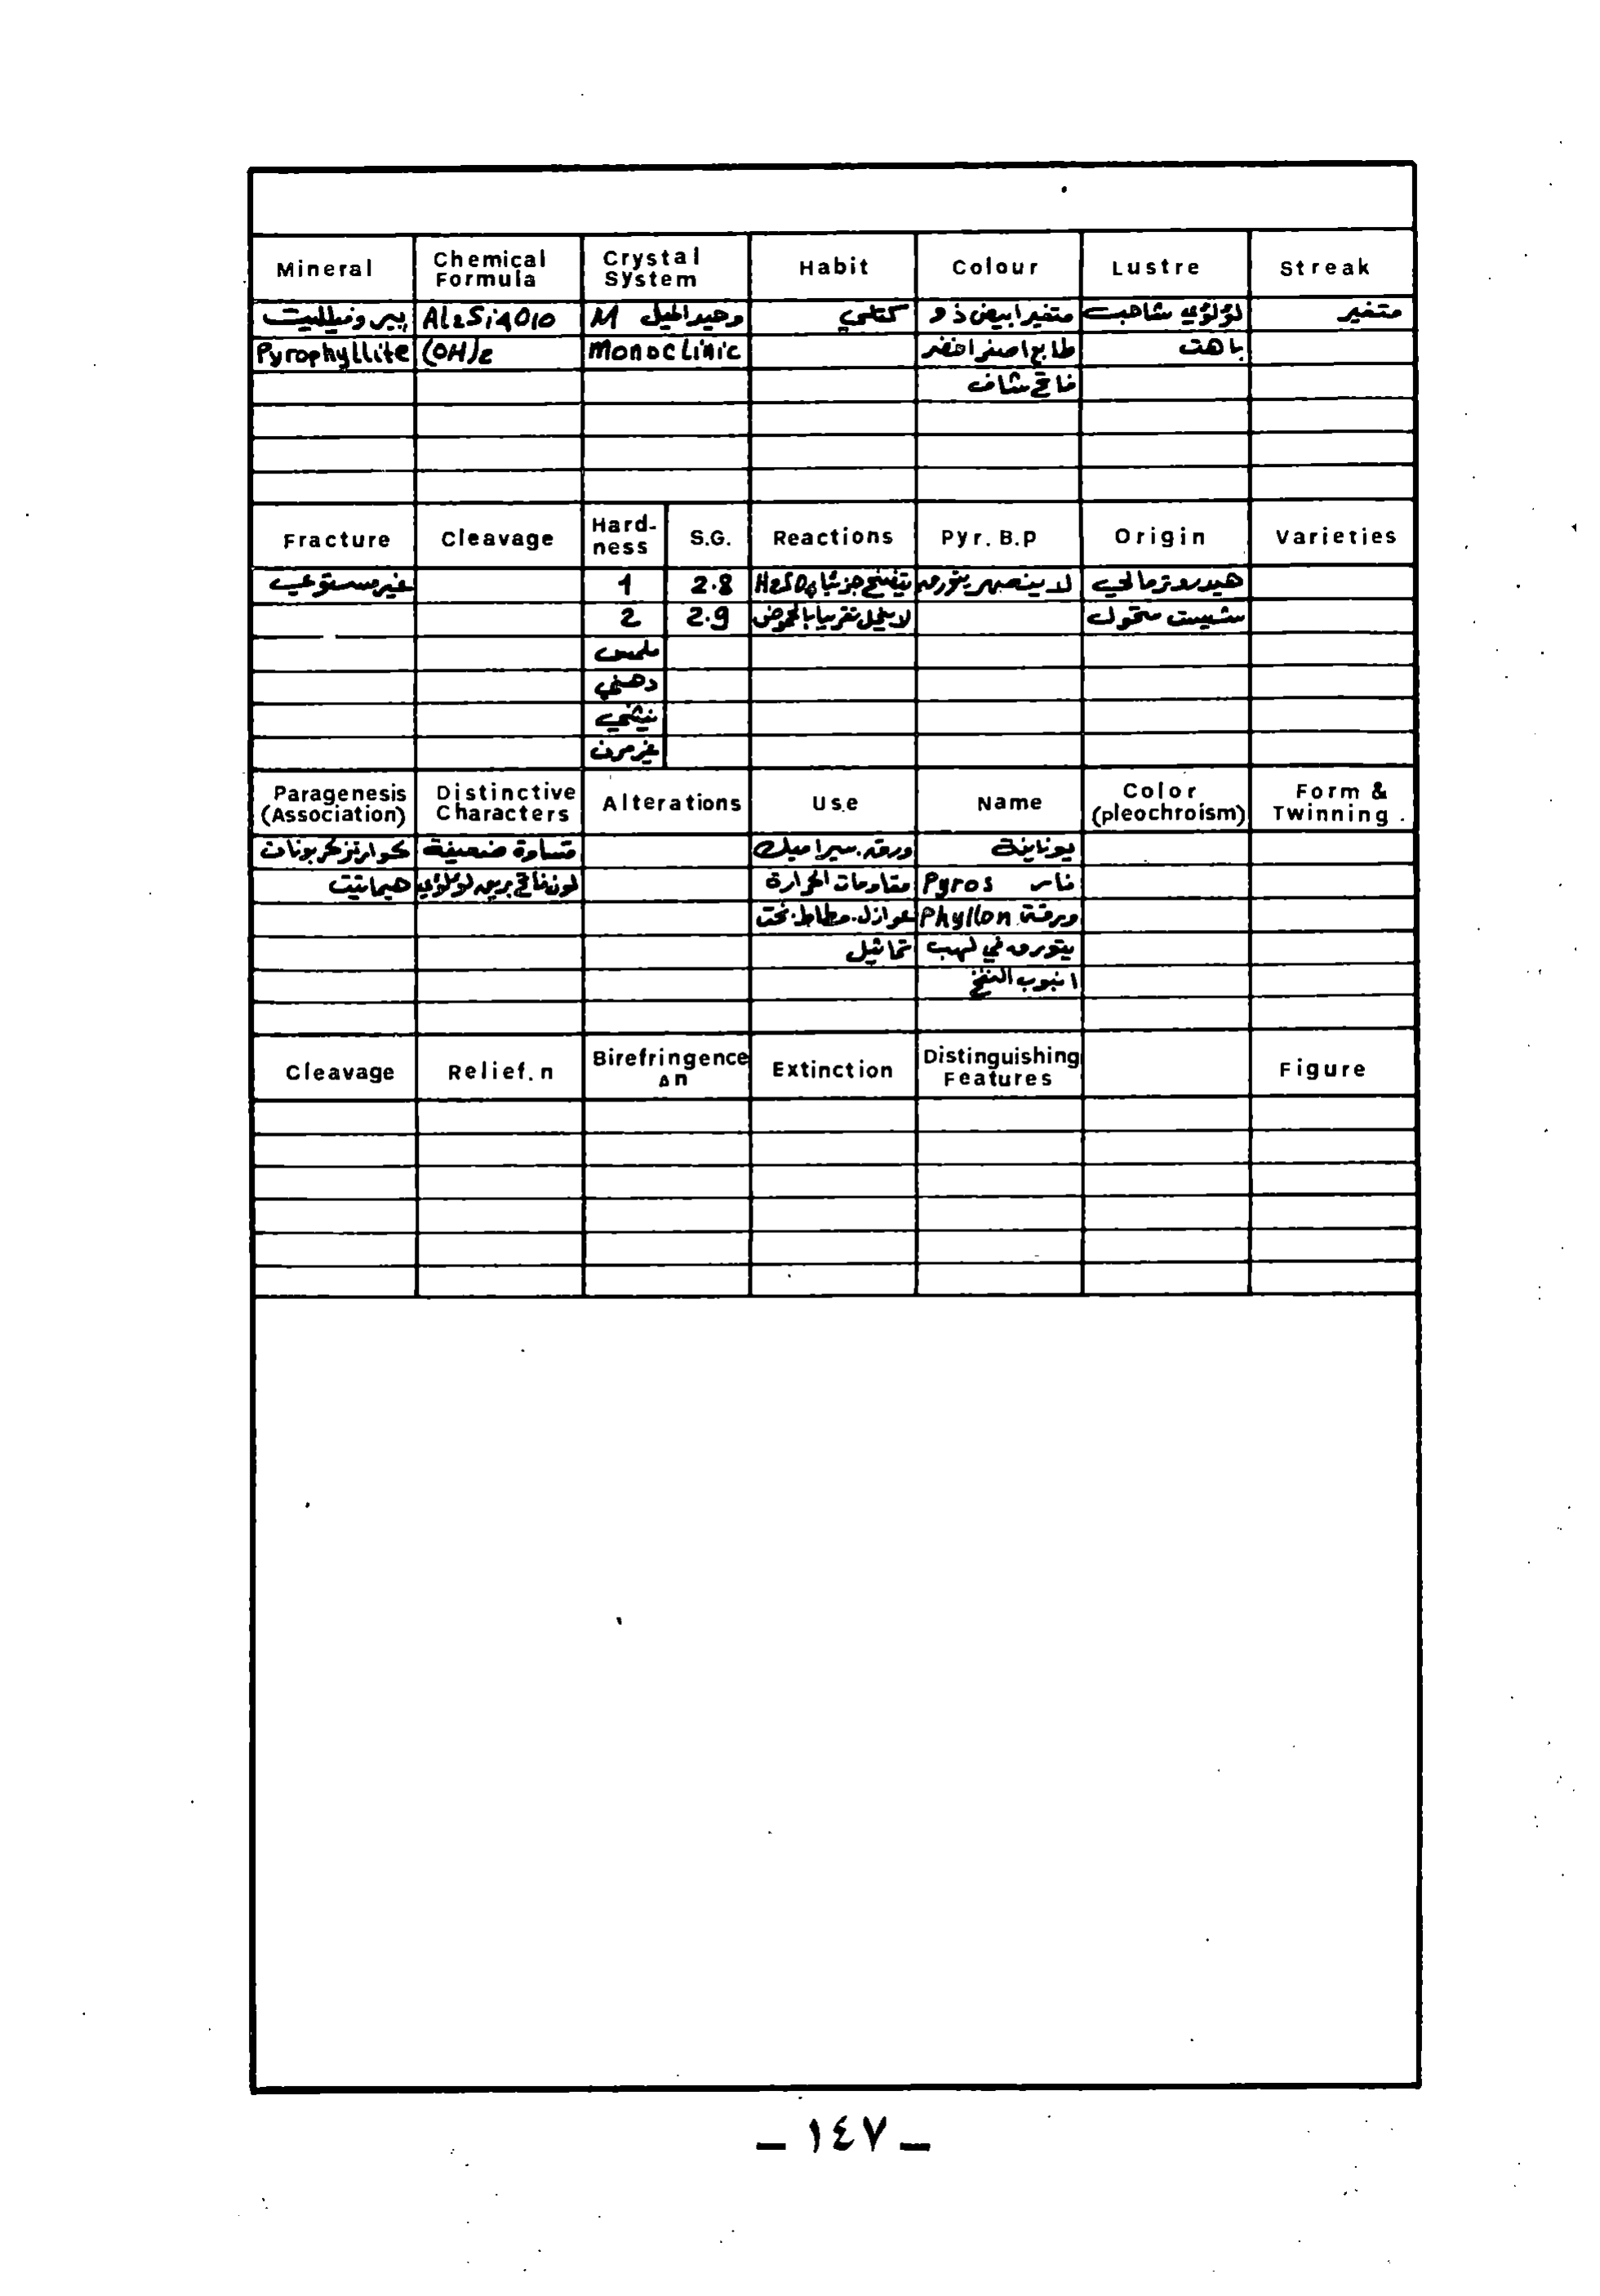 Mineral Chemical Formula Crystal System Habit Colour Lustre Streak
بيروفيلليت Al2Si4O10 وحيد الميل M كتلي متغير ابيض ذو لؤلؤي شاحب متغير
Pyrophyllite (OH)2 Monoclinic طابع اصفر اخضر باهت
فاتح شاف
Fracture Cleavage Hard-ness S.G. Reactions Pyr. B.P Origin Varieties
غير مستوي 1 2.8 يتفتح جزئيا H2SO4 لا ينصهر يتورق هيدروترمالي
2 2.9 لا ينحل تقريبا بالحموض شيست متحول
ملمس
دهني
ينثني
غير مرن
Paragenesis (Association) Distinctive Characters Alterations Use Name Color (pleochroism) Form & Twinning .
كوارتز كربونات قساوة ضعيفة ورق. سيراميك يونانية
هيماتيت لون فاتح بريق لؤلؤي مقاومات الحرارة نار Pyros
عوازل. مطاط. نحت ورقة Phyllon
تماثيل يتورق في لهب
انبوب النفخ
Cleavage Relief. n Birefringence Δn Extinction Distinguishing Features Figure
– ١٤٧ –